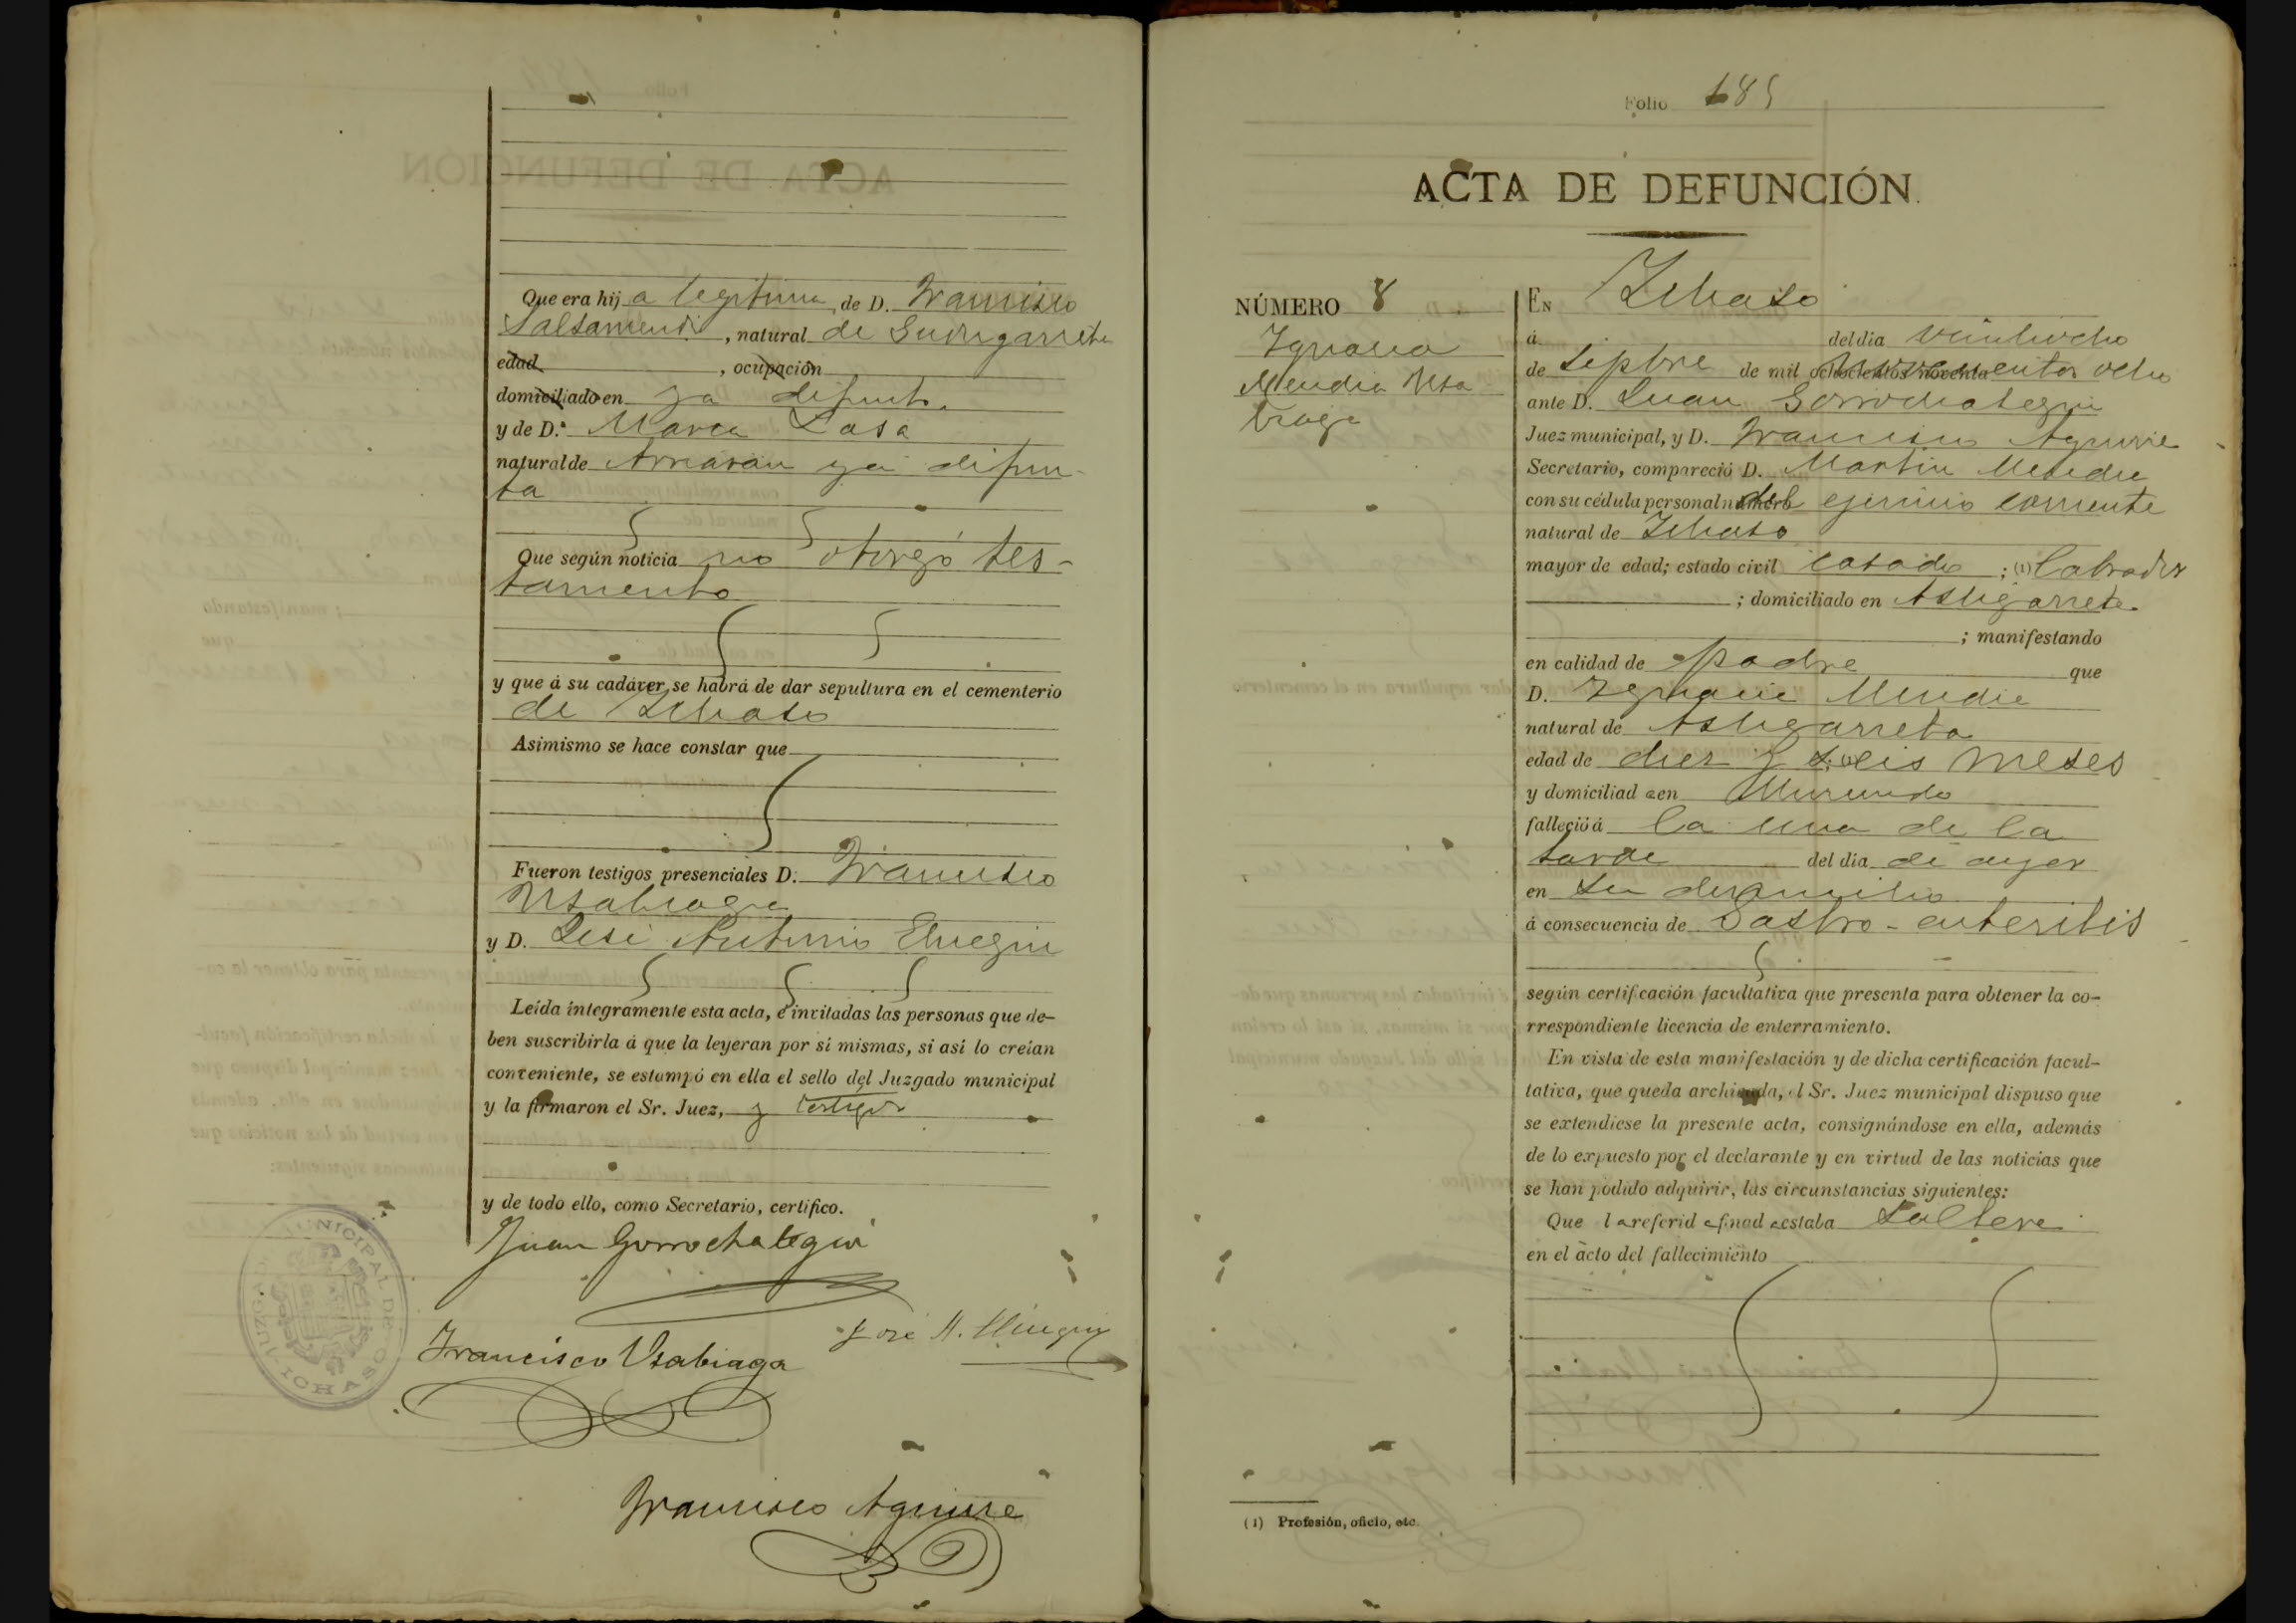 Que era hija legitima, de D. Francisco
Salsamendi, natural de Gudugarreta
edad , ocupación
domiciliado en ya difunto
y de D.ª Maria Lasa
natural de Arriaran ya difun-
ta
Que según noticia no otorgó tes-
tamento
y que á su cadáver se habrá de dar sepultura en el cementerio
de Ichaso
Asimismo se hace constar que
Fueron testigos presenciales D. Francisco
Usabiaga
y D. José Antonio
Leída íntegramente esta acta, é invitadas las personas que de-
ben suscribirla á que la leyeran por sí mismas, si así lo creían
conveniente, se estampó en ella el sello del Juzgado municipal
y la firmaron el Sr. Juez, y testigos
y de todo ello, como Secretario, certifico.
Juan Gorrochategui
José A.
Francisco Usabiaga
Francisco Aguirre
JUZGADO MUNICIPAL DE ICHASO
Folio 185
ACTA DE DEFUNCIÓN.
NÚMERO 8
Ignacia
Mendia Usa
biaga
EN Ichaso
á del dia veintiocho
de Sepbre de mil ochocientos noventa novecientos ocho
ante D. Juan Gorrochategui
Juez municipal, y D. Francisco Aguirre
Secretario, compareció D. Martin Mendia
con su cédula personal número del ejercicio corriente
natural de Ichaso
mayor de edad; estado civil casado ; (1) Labrador
; domiciliado en Astigarreta
; manifestando
en calidad de padre que
D. Ignacia Mendia
natural de Astigarreta
edad de diez y seis meses
y domiciliada en
falleció á la una de la
tarde del día de ayer
en su domicilio
á consecuencia de Gastro-enteritis
según certificación facultativa que presenta para obtener la co-
rrespondiente licencia de enterramiento.
En vista de esta manifestación y de dicha certificación facul-
tativa, que queda archivada, el Sr. Juez municipal dispuso que
se extendiese la presente acta, consignándose en ella, además
de lo expuesto por el declarante y en virtud de las noticias que
se han podido adquirir, las circunstancias siguientes:
Que la referida finada estaba soltera
en el acto del fallecimiento
(1) Profesión, oficio, etc.